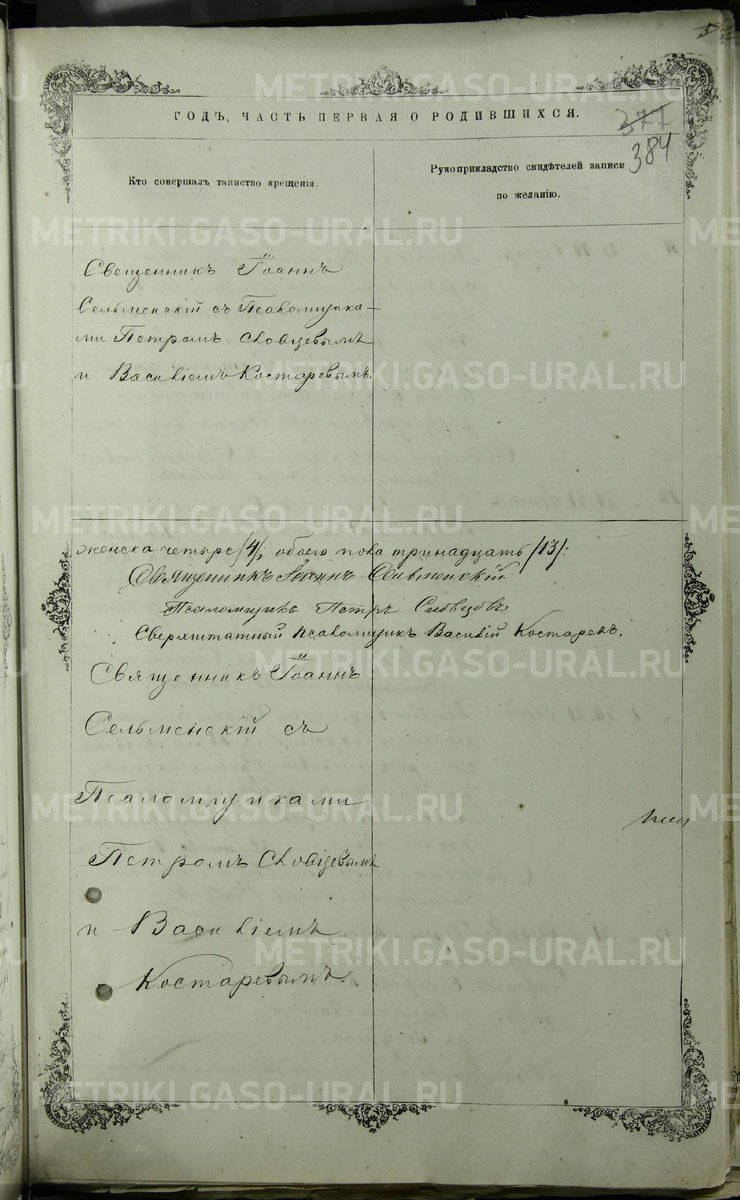 5
ГОДЪ, ЧАСТЬ ПЕРВАЯ О РОДИВШИХСЯ.
377
384
Кто совершалъ таинство крещенія.
Рукоприкладство свидѣтелей записи
по желанію.
Священникъ Іоаннъ
Сельменскій съ Псаломщика-
ми Петромъ Словцевымъ
и Василіемъ Костаревымъ.
женска четыре /4/, обоего пола тринадцать /13/:
Священникъ Іоаннъ Сельменскій
Псаломщикъ Петръ Словцовъ
Сверхштатный псаломщикъ Василій Костаревъ.
Священникъ Іоаннъ
Сельменскій съ
Псаломщиками
Петромъ Словцевымъ
и Василіемъ
Костаревымъ.
METRIKI.GASO-URAL.RU